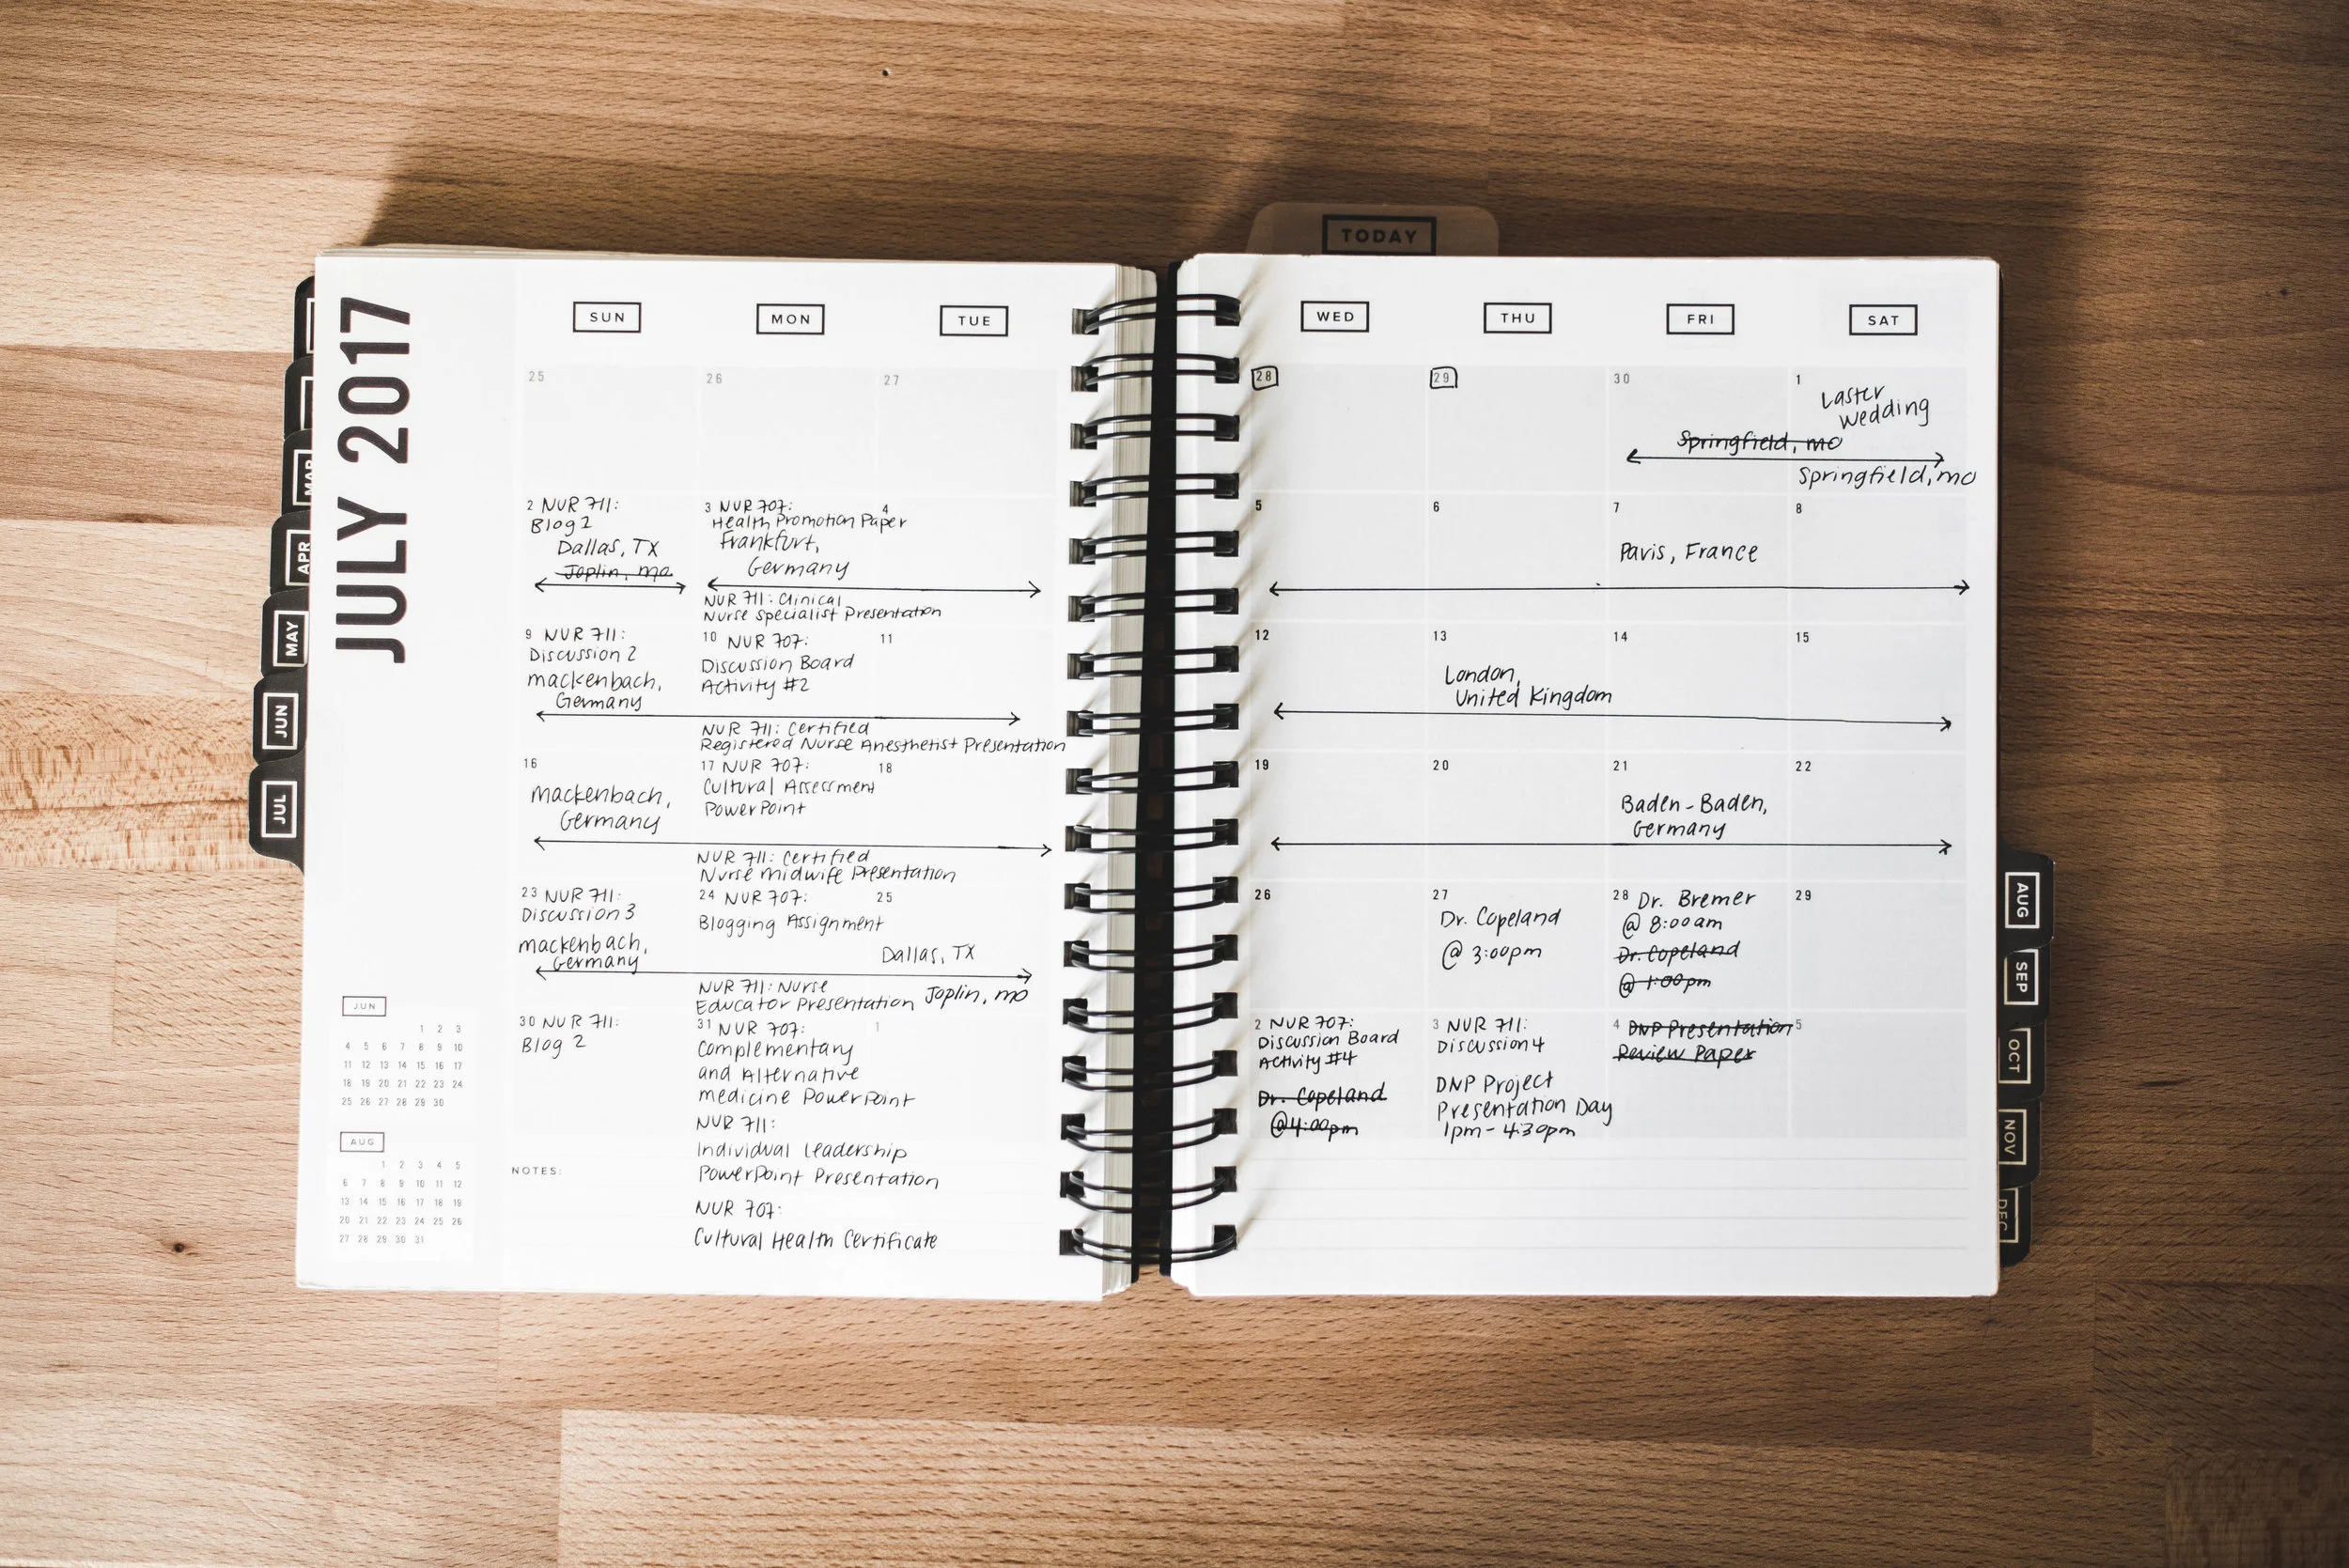 TODAY
JULY 2017
SUN
MON
TUE
WED
THU
FRI
SAT
25
26
27
28
29
30
1
Laster
Wedding
Springfield, MO
Springfield, MO
2 NUR 711:
Blog 2
Dallas, TX
Joplin, MO
3 NUR 707:
Health Promotion Paper
Frankfurt,
Germany
NUR 711: Clinical
Nurse Specialist Presentation
4
5
6
7
Paris, France
8
9 NUR 711:
Discussion 2
Mackenbach,
Germany
10 NUR 707:
Discussion Board
Activity #2
NUR 711: Certified
Registered Nurse Anesthetist Presentation
11
12
13
London,
United Kingdom
14
15
16
Mackenbach,
Germany
17 NUR 707:
Cultural Assessment
PowerPoint
NUR 711: Certified
Nurse Midwife Presentation
18
19
20
21
Baden-Baden,
Germany
22
23 NUR 711:
Discussion 3
Mackenbach,
Germany
24 NUR 707:
Blogging Assignment
NUR 711: Nurse
Educator Presentation
25
Dallas, TX
Joplin, MO
26
27
Dr. Copeland
@ 3:00pm
28 Dr. Bremer
@ 8:00am
Dr. Copeland
@ 1:00pm
29
30 NUR 711:
Blog 2
31 NUR 707:
Complementary
and Alternative
Medicine PowerPoint
NUR 711:
Individual Leadership
PowerPoint Presentation
NUR 707:
Cultural Health Certificate
1
2 NUR 707:
Discussion Board
Activity #4
Dr. Copeland
@4:00pm
3 NUR 711:
Discussion 4
DNP Project
Presentation Day
1pm - 4:30pm
4 DNP Presentation
Review Paper
5
NOTES:
JUN
1 2 3
4 5 6 7 8 9 10
11 12 13 14 15 16 17
18 19 20 21 22 23 24
25 26 27 28 29 30
AUG
1 2 3 4 5
6 7 8 9 10 11 12
13 14 15 16 17 18 19
20 21 22 23 24 25 26
27 28 29 30 31
MAR
APR
MAY
JUN
JUL
AUG
SEP
OCT
NOV
DEC